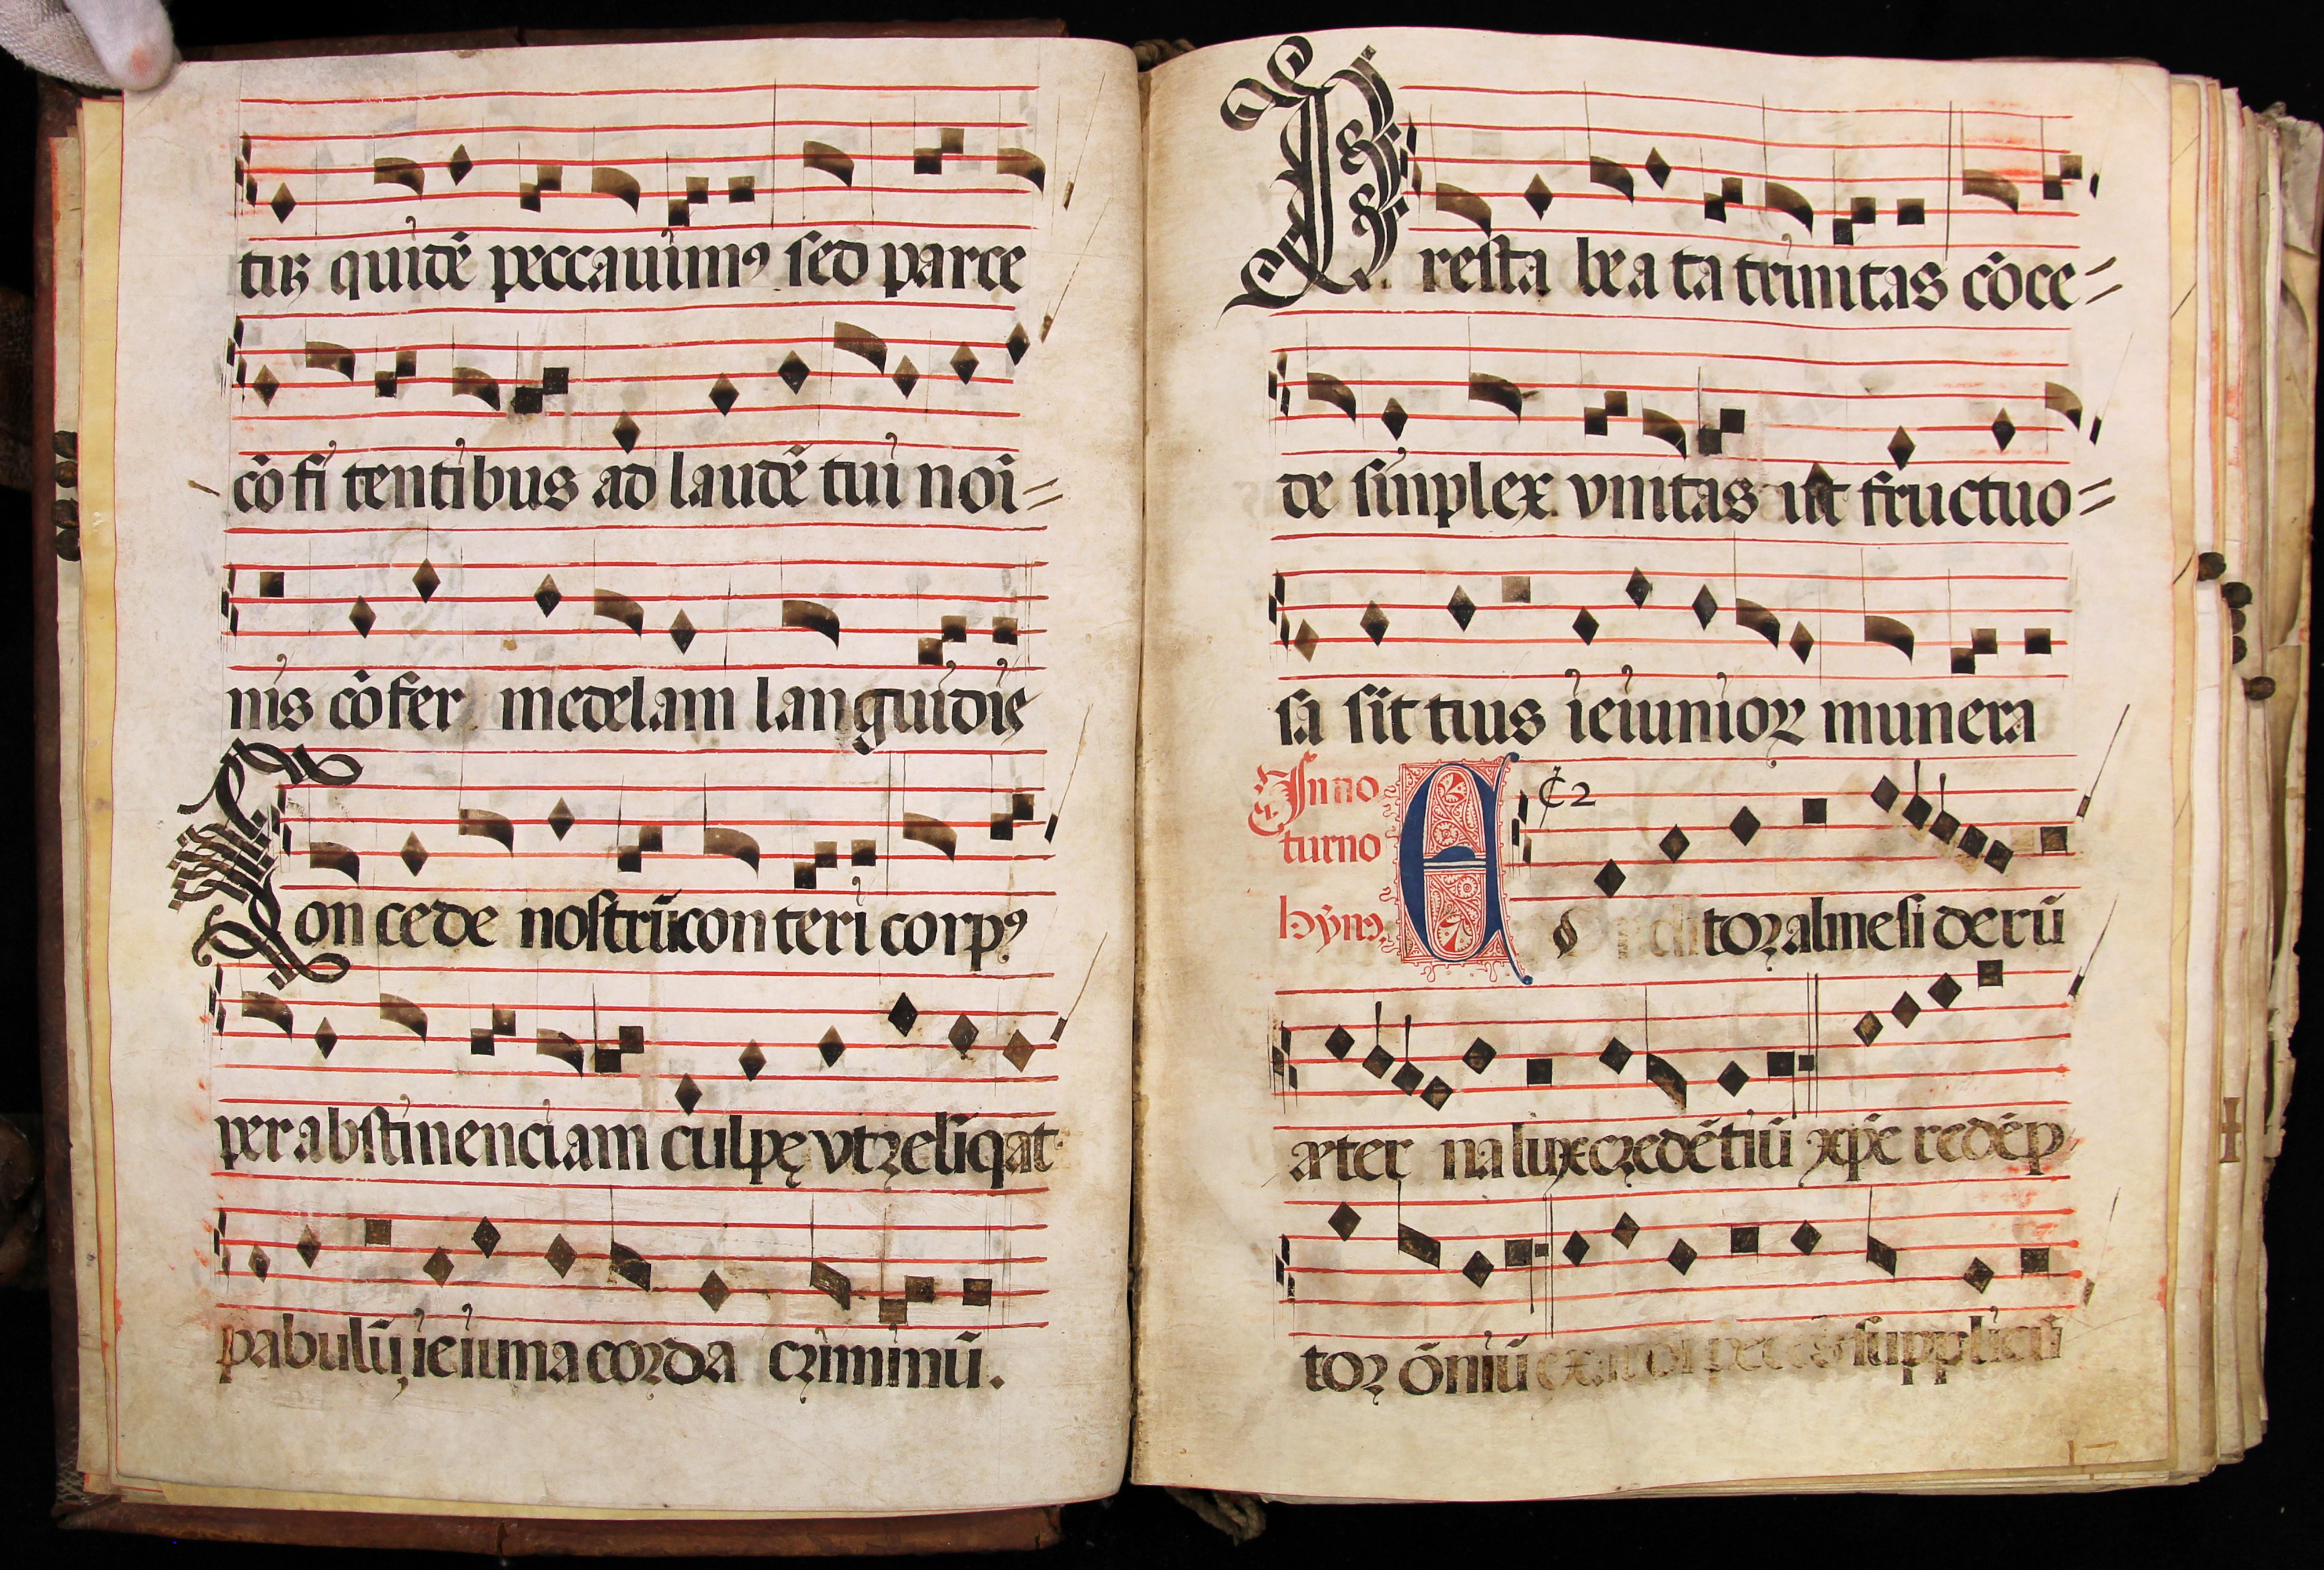 tuȝ quidē peccauimꝰ sed parce
cōfi tentibus ad laudē tui noi=
nis cōfer medelam languidis
Concede nostrū conteri corpꝰ
per abstinenciam culpę vt reliqāt
pabulū, ieiuna corda criminū.
Presta beata trinitas cōce=
de sinplex vnitas ut fructuo=
sa sit tuis ieiunioꝝ munera
In no
turno
hȳnꝰ.
₵2
toꝛ alme siderū
æter na lux credētiū xp̄e redēp
toꝛ ōniū exaudi preces supplicū
17